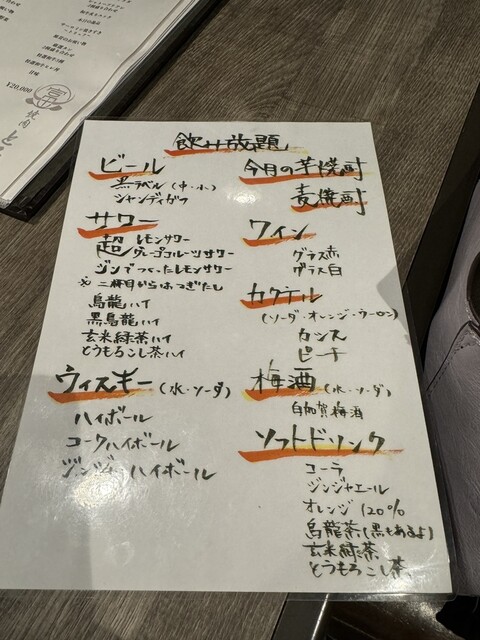 飲み放題
ビール
黒ラベル(中・小)
シャンディガフ
サワー
超レモンサワー
超グレープフルーツサワー
ジンでつくったレモンサワー
※二杯目からはつぎたし
烏龍ハイ
黒烏龍ハイ
玄米緑茶ハイ
とうもろこし茶ハイ
ウィスキー(水・ソーダ)
ハイボール
コークハイボール
ジンジャーハイボール
今月の芋焼酎
麦焼酎
ワイン
グラス赤
グラス白
カクテル
(ソーダ・オレンジ・ウーロン)
カシス
ピーチ
梅酒(水・ソーダ)
白加賀梅酒
ソフトドリンク
コーラ
ジンジャエール
オレンジ120%
烏龍茶(黒もあるよ)
玄米緑茶
とうもろこし茶
¥20,000
焼肉